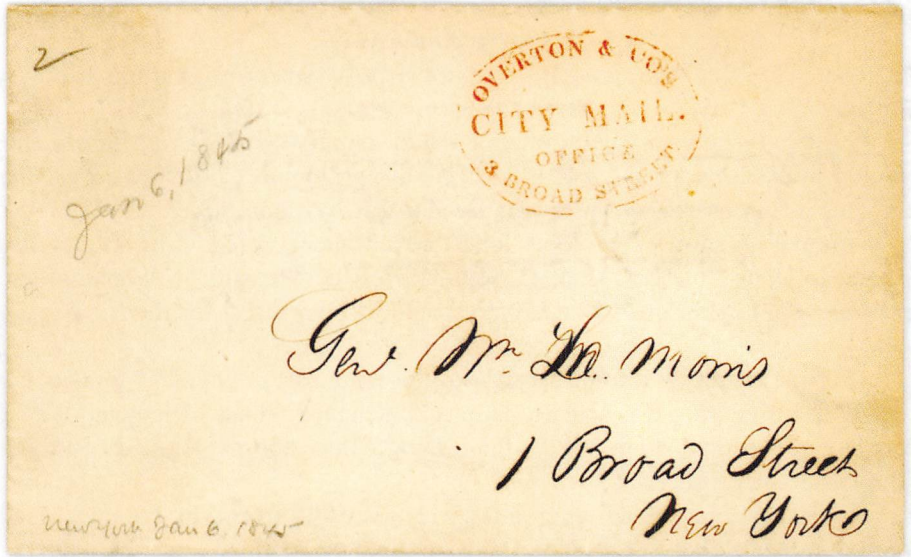 2
OVERTON & CO'S
CITY MAIL.
OFFICE
3 BROAD STREET.
Jan 6, 1845
Genl. Wm. Morris
1 Broad Street
New York
New York Jan 6, 1845